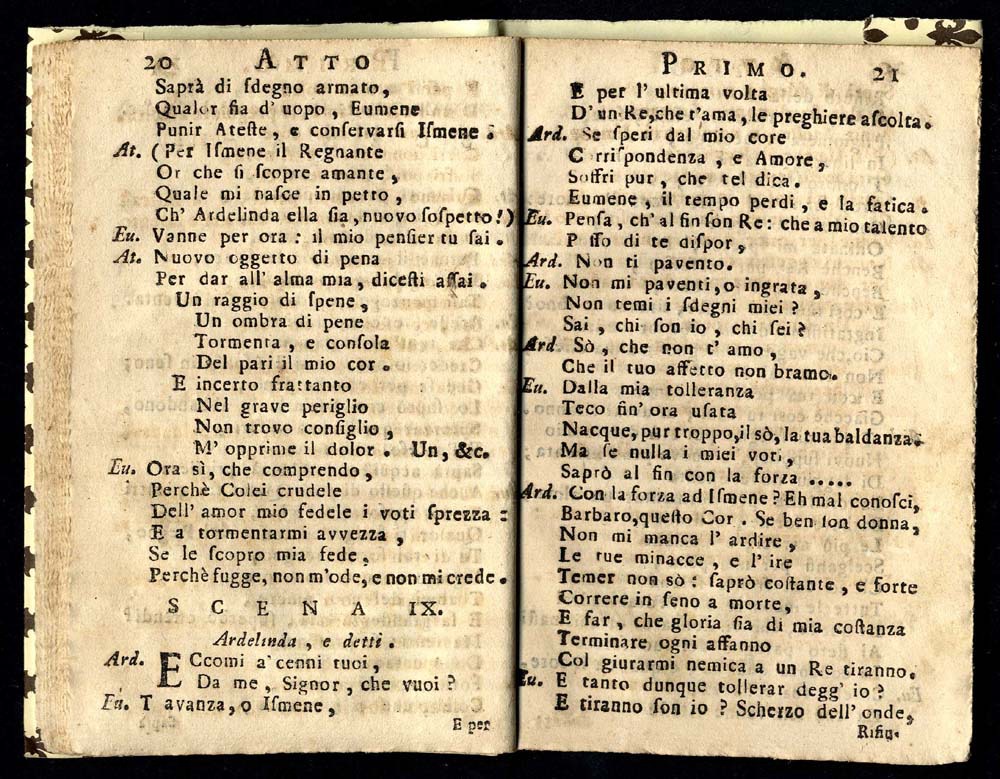 20 ATTO
Saprà di sdegno armato,
Qualor sia d' uopo, Eumene
Punir Ateste, e conservarsi Ismene.
At. (Per Ismene il Regnante
Or che si scopre amante,
Quale mi nasce in petto,
Ch' Ardelinda ella sia, nuovo sospetto!)
Eu. Vanne per ora: il mio pensier tu sai.
At. Nuovo oggetto di pena
Per dar all' alma mia, dicesti assai.
Un raggio di spene,
Un ombra di pene
Tormenta, e consola
Del pari il mio cor.
E incerto frattanto
Nel grave periglio
Non trovo consiglio,
M' opprime il dolor. Un, &c.
Eu. Ora sì, che comprendo,
Perchè Colei crudele
Dell' amor mio fedele i voti sprezza:
E a tormentarmi avvezza,
Se le scopro mia fede,
Perchè fugge, non m'ode, e non mi crede.
SCENA IX.
Ardelinda, e detti.
Ard. ECcomi a' cenni tuoi,
Da me, Signor, che vuoi?
Eu. T avanza, o Ismene,
E per
PRIMO. 21
E per l' ultima volta
D'un Re, che t'ama, le preghiere ascolta.
Ard. Se speri dal mio core
C rrispondenza, e Amore,
Soffri pur, che tel dica.
Eumene, il tempo perdi, e la fatica.
Eu. Pensa, ch' al fin son Re: che a mio talento
P sso di te dispor,
Ard. Non ti pavento.
Eu. Non mi paventi, o ingrata,
Non temi i sdegni miei?
Sai, chi son io, chi sei?
Ard Sò, che non t' amo,
Che il tuo affetto non bramo.
Eu. Dalla mia tolleranza
Teco fin' ora usata
Nacque, pur troppo, il sò, la tua baldanza.
Ma se nulla i miei voti,
Saprò al fin con la forza .....
Ard. Con la forza ad Ismene? Eh mal conosci,
Barbaro, questo Cor. Se ben son donna,
Non mi manca l' ardire,
Le tue minacce, e l' ire
Temer non sò: saprò costante, e forte
Correre in seno a morte,
E far, che gloria sia di mia costanza
Terminare ogni affanno
Col giurarmi nemica a un Re tiranno.
Eu. E tanto dunque tollerar degg' io?
E tiranno son io? Scherzo dell' onde,
Rifiu-